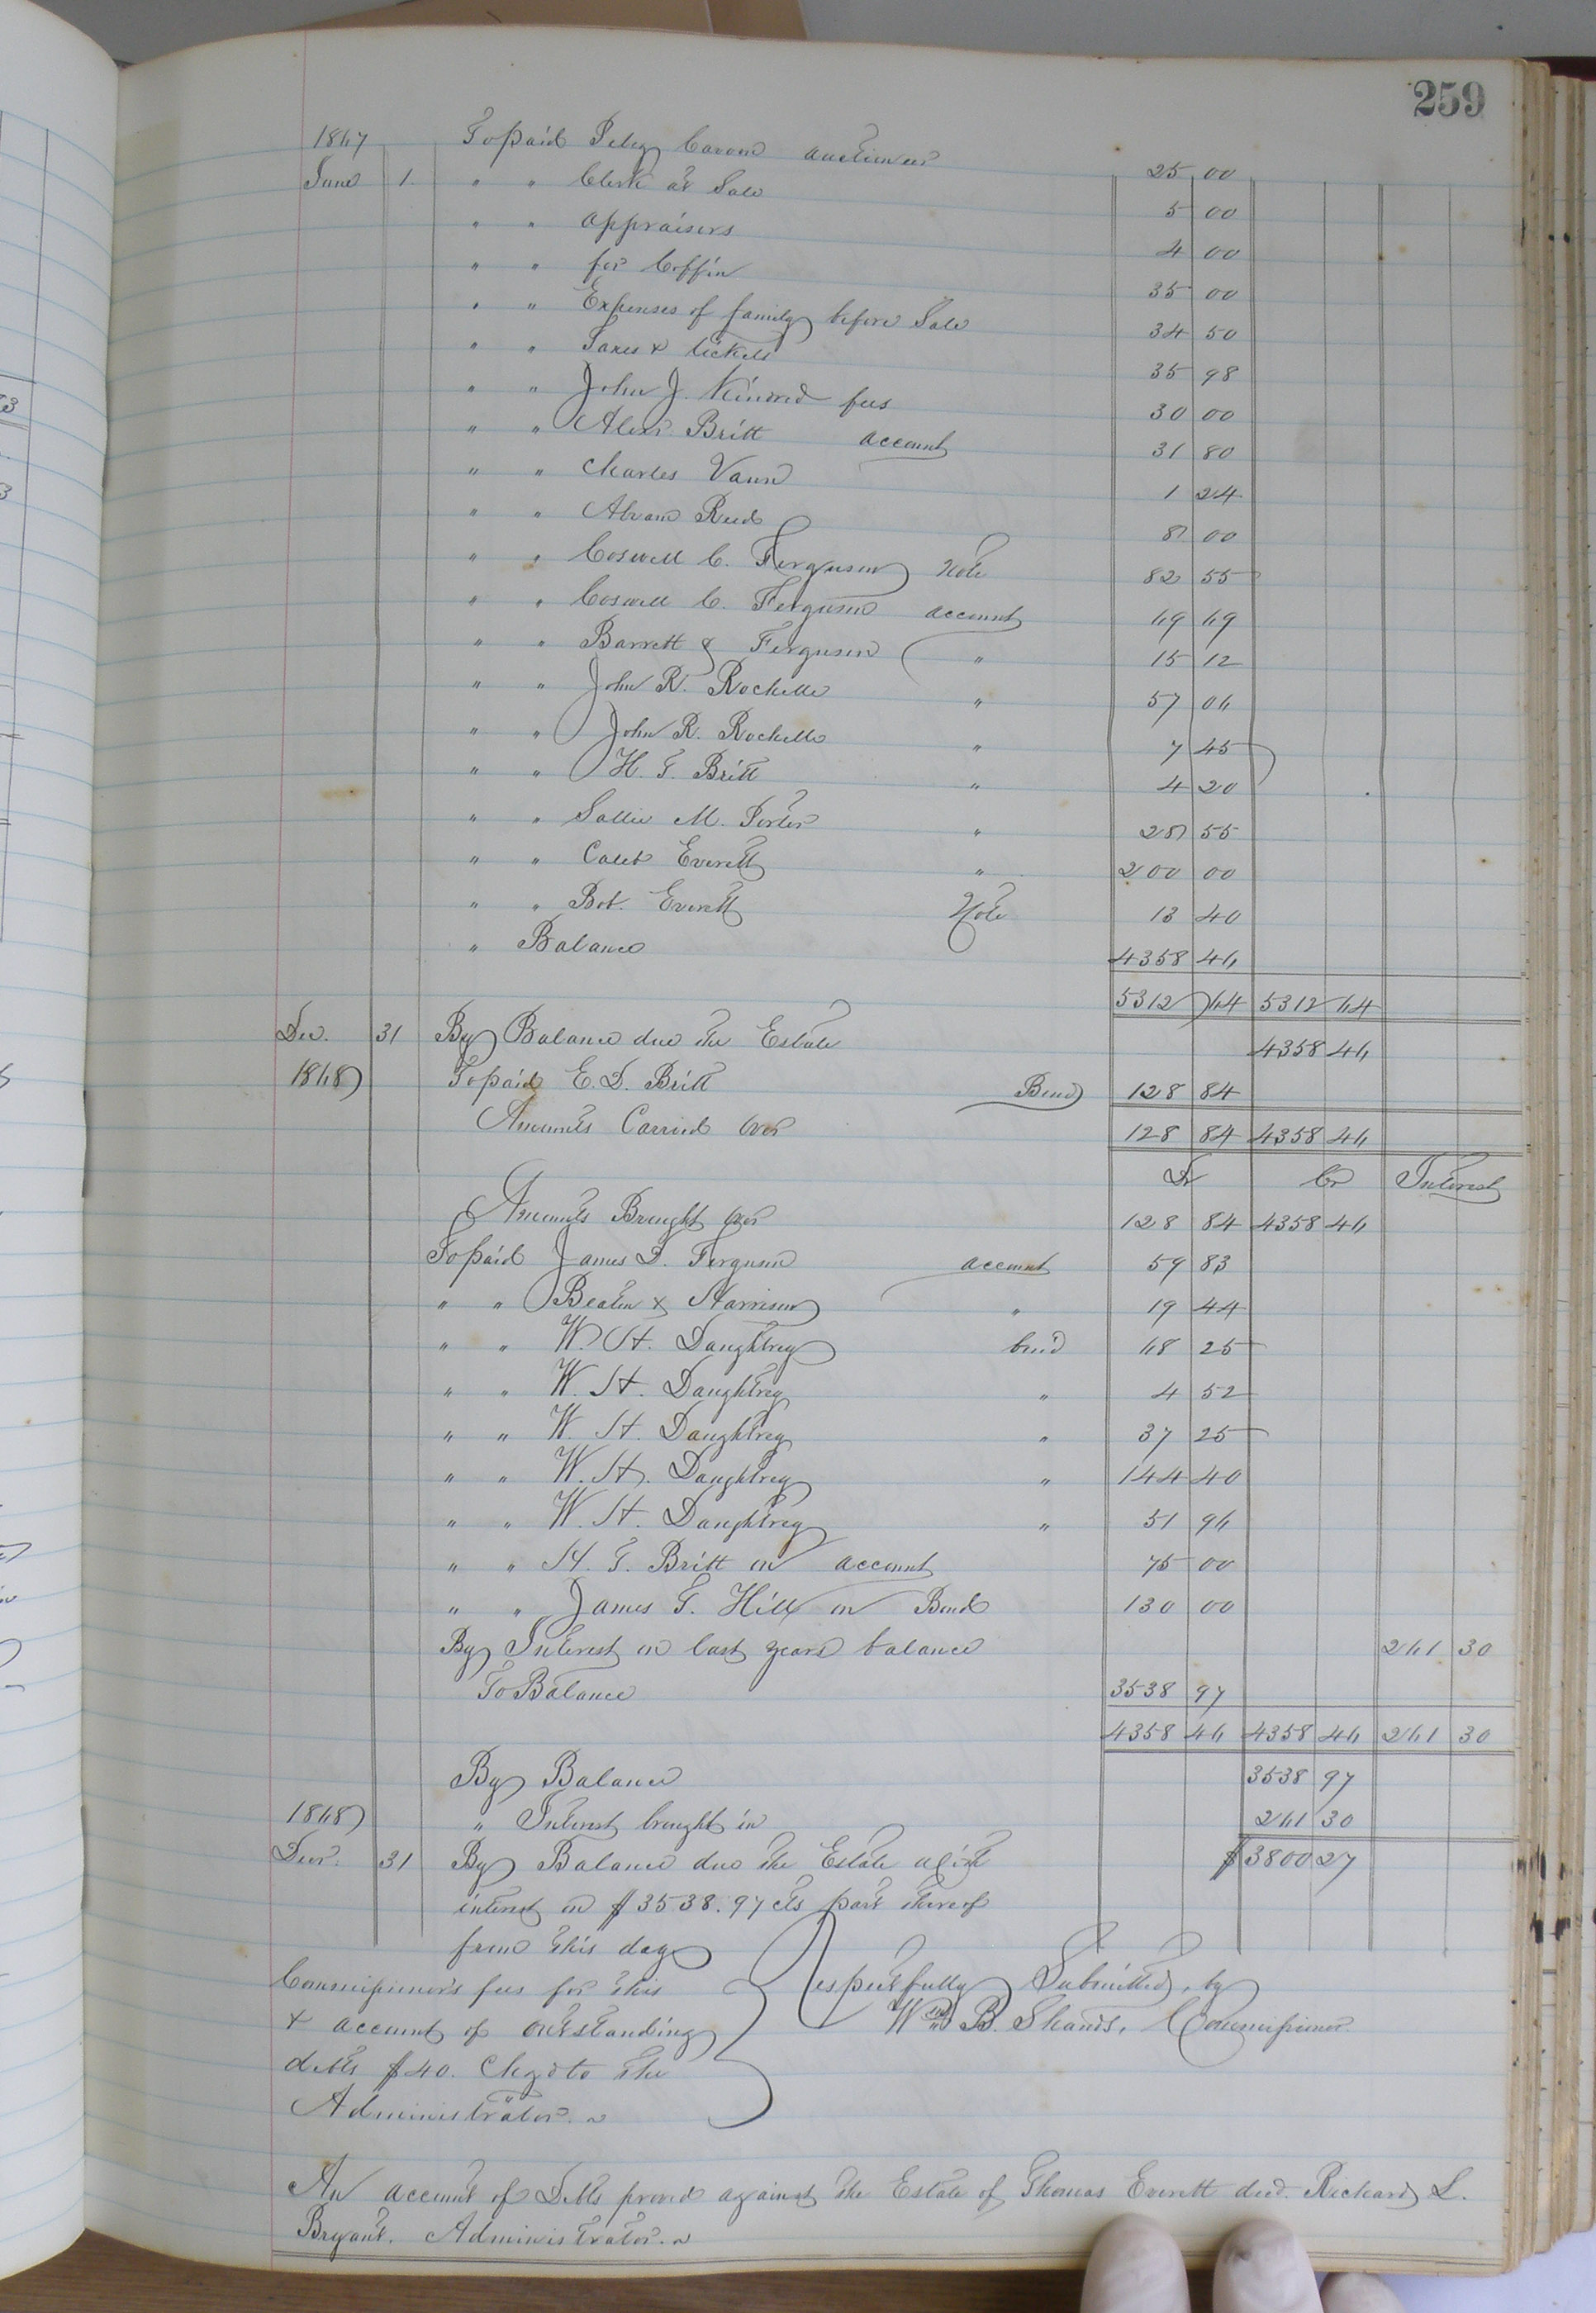 259
1867 To paid Peleg Barom auctioneer 25 00
June 1. " " Clerk at Sale 5 00
" " appraisers 4 00
" " for Coffin 35 00
" " Expenses of family before Sale 34 50
" " Taxes & tickets 35 98
" " John J. Kindred fees 30 00
" " Alexr. Britt account 31 80
" " Charles Vann 1 24
" " Abram Reed 8 00
" " Coswell C. Ferguson Note 82 55
" " Coswell C. Ferguson account 69 69
" " Barrett & Ferguson " 15 12
" " John R. Rochelle " 57 06
" " John R. Rochelle " 7 45
" " H. T. Britt " 4 20
" " Sallie M. Porter " 28 55
" " Caleb Everett " 200 00
" " Bot. Everett Note 13 40
" Balance 4358 46
5312 64 5312 64
Dec. 31 By Balance due the Estate 4358 46
1868 To paid E. D. Britt Bond 128 84
Amounts Carried Over 128 84 4358 46
Dr Cr Interest
Amounts Brought Over 128 84 4358 46
To paid James D. Ferguson account 59 83
" " Beaton & Harrison " 19 44
" " W. H. Daughtrey bond 68 25
" " W. H. Daughtrey " 4 52
" " W. H. Daughtrey " 37 25
" " W. H. Daughtrey " 144 40
" " W. H. Daughtrey " 51 96
" " H. T. Britt on account 75 00
" " James G. Hill on Bond 130 00
By Interest on last years balance 261 30
To Balance 3538 97
4358 46 4358 46 261 30
By Balance 3538 97
1868 " Interest brought in 261 30
Decr. 31 By Balance due the Estate with $3800 27
interest on $3538.97 cts part thereof
from this day
Commissioner's fees for this
& account of outstanding
debts $40. Chgd to the
Administrator.
Respectfully Submitted, by
Wm B. Shands, Commissioner.
An account of Debts proved against the Estate of Thomas Everett decd. Richard L.
Bryant. Administrator.